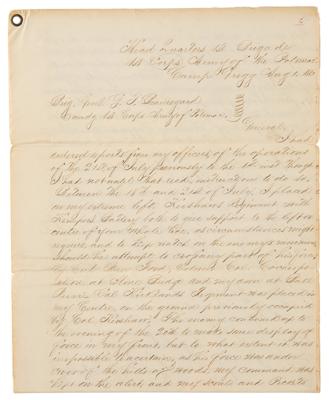 Head Quarters 1st Brigade
1st Corps Army of the Potomac
Camp Gregg Aug 1, 186
Brig Genl G. T. Beauregard
Comdg 1st Corps Army of Potomac
General
I had
ordered reports from my officers of the operations
of the 21st of July previously to the
I had not until that
instructions to do so.
Between the 18th and 21st of July, I placed
on my extreme left Kershaws Regiment with
Kempers Battery both to give support to the left or
centre of your whole line, as circumstances might
require and to keep watch on the enemys
should he attempt to cross any part of his force
by
at Stone Bridge and my own at
Col Kirklands Regiment was placed in
my Centre, on the ground previously occupied
by Col Kershaw. The enemy continued up to
the evening of the 20th to make some display of
force in my front, but to what extent it was
impossible to ascertain, as his force was under
cover of the hills & woods, my command was
kept on the alert, and my scouts and